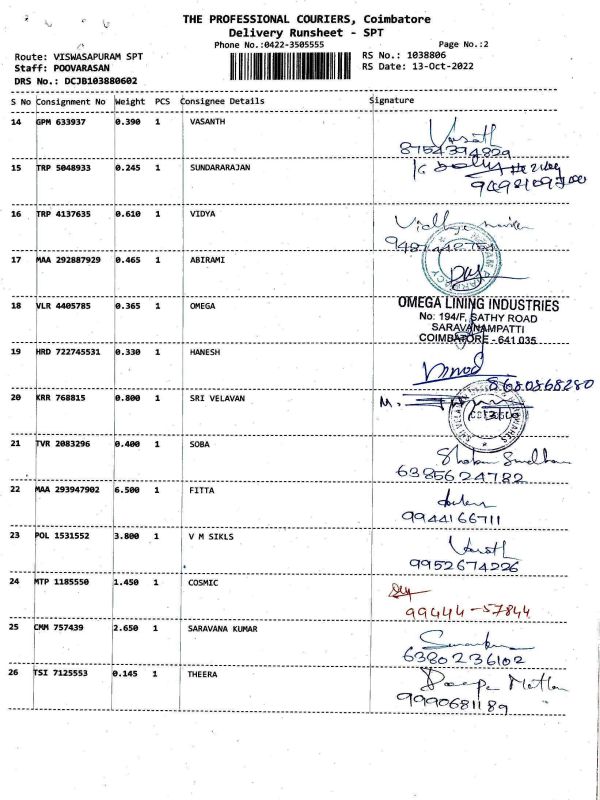 THE PROFESSIONAL COURIERS, Coimbatore
Delivery Runsheet - SPT
Phone No.:0422-3505555 Page No.:2
Route: VISWASAPURAM SPT RS No.: 1038806
Staff: POOVARASAN RS Date: 13-Oct-2022
DRS No.: DCJB103880602
S No Consignment No Weight PCS Consignee Details Signature
14 GPM 633937 0.390 1 VASANTH
8754394829
15 TRP 5048933 0.245 1 SUNDARARAJAN
16 TRP 4137635 0.610 1 VIDYA
17 MAA 292887929 0.465 1 ABIRAMI
18 VLR 4405785 0.365 1 OMEGA
OMEGA LINING INDUSTRIES
No: 194/F, SATHY ROAD
SARAVANAMPATTI
COIMBATORE - 641 035
19 HRD 722745531 0.330 1 HANESH
Vinod
8680868280
20 KRR 768815 0.800 1 SRI VELAVAN
21 TVR 2083296 0.400 1 SOBA
6385624782
22 MAA 293947902 6.500 1 FITTA
9944166711
23 POL 1531552 3.800 1 V M SIKLS
9952674226
24 MTP 1185550 1.450 1 COSMIC
99444-57844
25 CMM 757439 2.650 1 SARAVANA KUMAR
6380236102
26 TSI 7125553 0.145 1 THEERA
9990681189